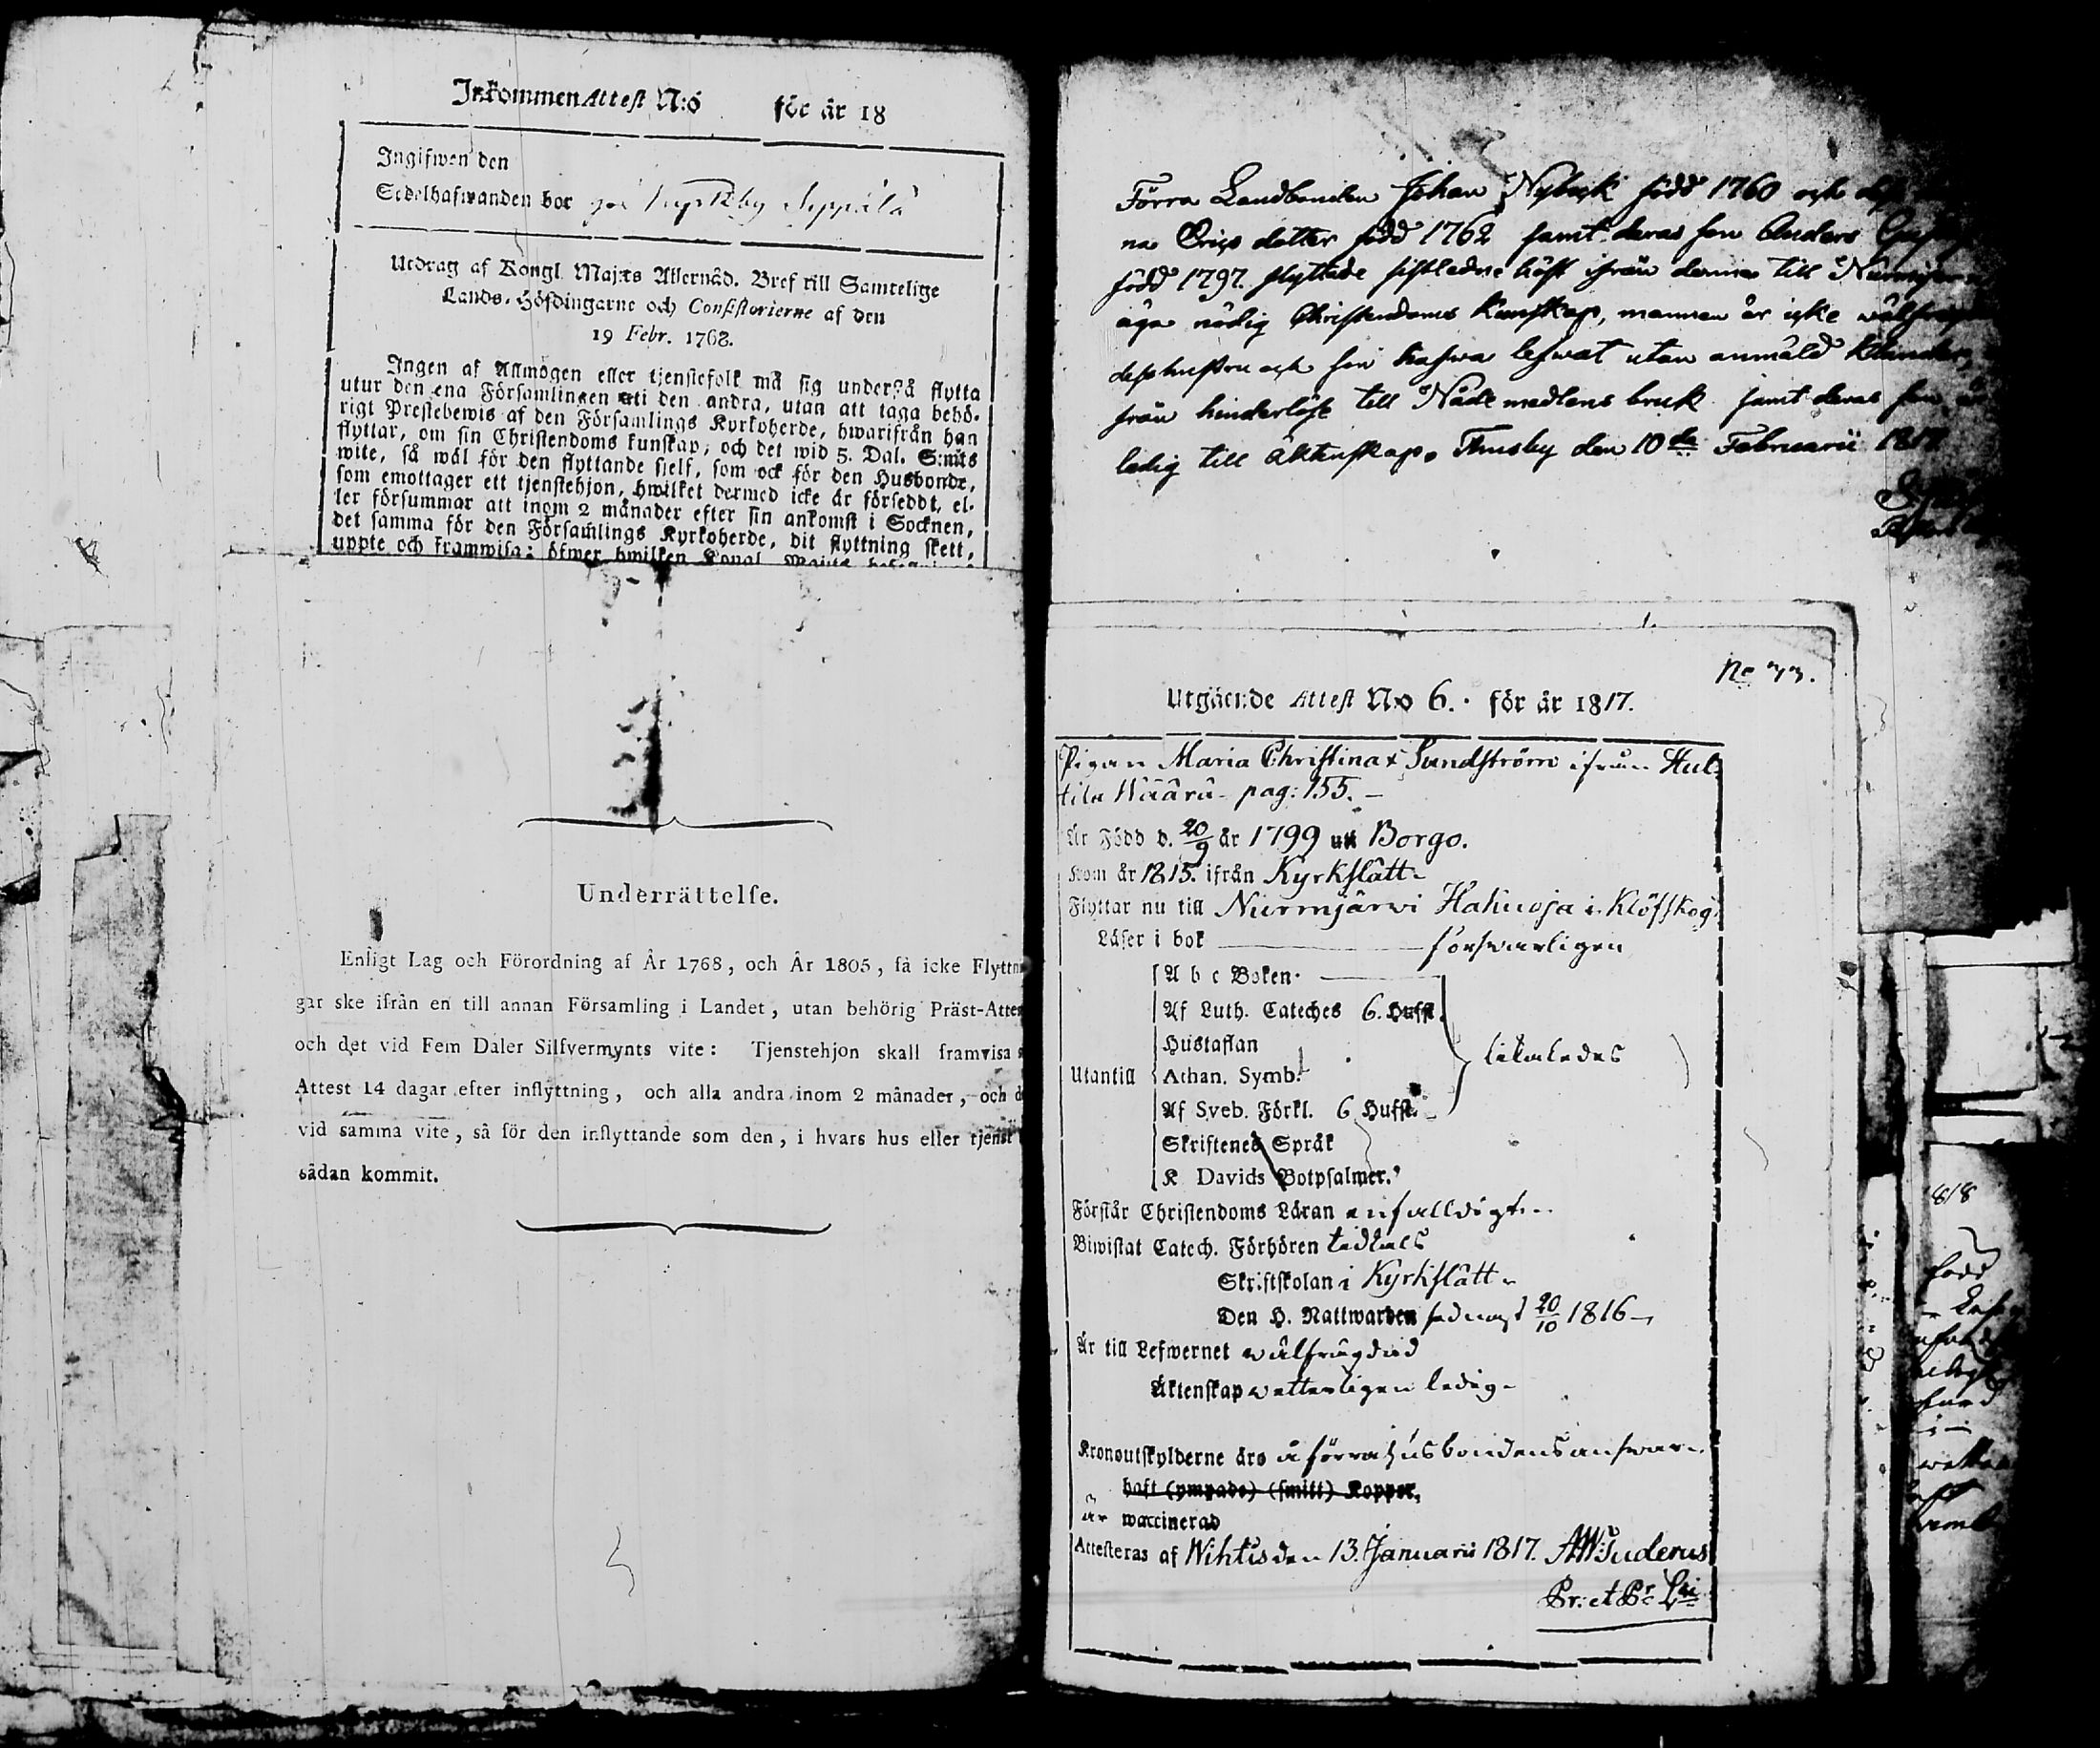 Inkommen Attest N:o för år 18
Ingifwen den
Sedelhafwanden bor
Utdrag af Kongl. Maj:ts Allernåd. Bref till Samtelige
Lands-Höfdingarne och Consistorierne af den
19 Febr. 1768.
Ingen af Allmogen eller tjenstefolk må sig understå flytta
utur den ena Församlingen uti den andra, utan att taga behö-
rigt Prestebewis af den Församlings Kyrkoherde, hwarifrån han
flyttar, om sin Christendoms kunskap; och det wid 5. Dal. S:mts
wite, så wäl för den flyttande sjelf, som ock för den Husbonde,
som emottager ett tjenstehjon, hwilket dermed icke är försedt, el-
ler försummar att inom 2 månader efter sin ankomst i Socknen,
det samma för den Församlings Kyrkoherde, dit flyttning skett,
uppte och framwisa; öfwer hwilken Kongl. Maj:ts
Underrättelse.
Enligt Lag och Förordning af År 1768, och År 1805, få icke Flyttn
gar ske ifrån en till annan Församling i Landet, utan behörig Präst-Attes
och det vid Fem Daler Silfvermynts vite: Tjenstehjon skall framvisa s
Attest 14 dagar efter inflyttning, och alla andra inom 2 månader, och d
vid samma vite, så för den inflyttande som den, i hvars hus eller tjenst
sådan kommit.
Förra Landbonden Johan Nybeck född 1760 och dess
na Erics dotter född 1762 samt deras son Anders
född 1797. flyttade sistledne höst ifrån denna till
äga nödig Christendoms kunskap, mannen är icke
dess hustru och son hafwa lefwat utan anmäld klander,
från hinderlöse till Nådemedlens bruk samt deras son
ledig till äktenskap. Thusby den 10de Februarii 1817
No 33.
Utgående Attest No 6. för år 1817.
Pigan Maria Christina Sundström ifrån Hut-
tila Wäärä pag: 155.
Är Född d. 20/9 år 1799 uti Borgo.
Kom år 1815. ifrån Kyrkslätt
Flyttar nu till Nurmjärwi Hahnoja i Klöfskog
Läser i bok försvarligen
A b c Boken
Af Luth. Cateches 6. Hufst.
Hustaflan
Utantill Athan. Symb. likaledes
Af Sveb. Förkl. 6 Hufst.
Skriftenes Språk
K. Davids Botpsalmer.
Förstår Christendoms Läran enfalldigt
Biwistat Catech. Förhören
Skriftskolan i Kyrkslätt
Den H. Nattwarden sednast 20/10 1816
Är till Lefwernet wälfrägdad
Äktenskap wetterligen ledig
Kronoutskylderne äro å förra husbondens answar
haft (ympade) (smitt) Koppor,
är waccinerad
Attesteras af Wihtis den 13. Januarii 1817. AW: Suderus
818
född